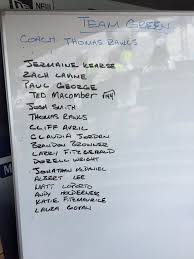 TEAM GREEN
COACH THOMAS RAWLS
JERMAINE KEARSE
ZACH LAVINE
PAUL GEORGE
TED MACOMBER
JOSH SMITH
THOMAS RAWLS
CLIFF AVRIL
CLAUDIA JORDAN
BRANDON BROWNER
LARRY FITZGERALD
DORELL WRIGHT
JONATHAN MCDANIEL
ALBERT LEE
MATT LOPORTO
ANDY HOLDERNESS
KATIE FITZMAURICE
LAURA GOVAN